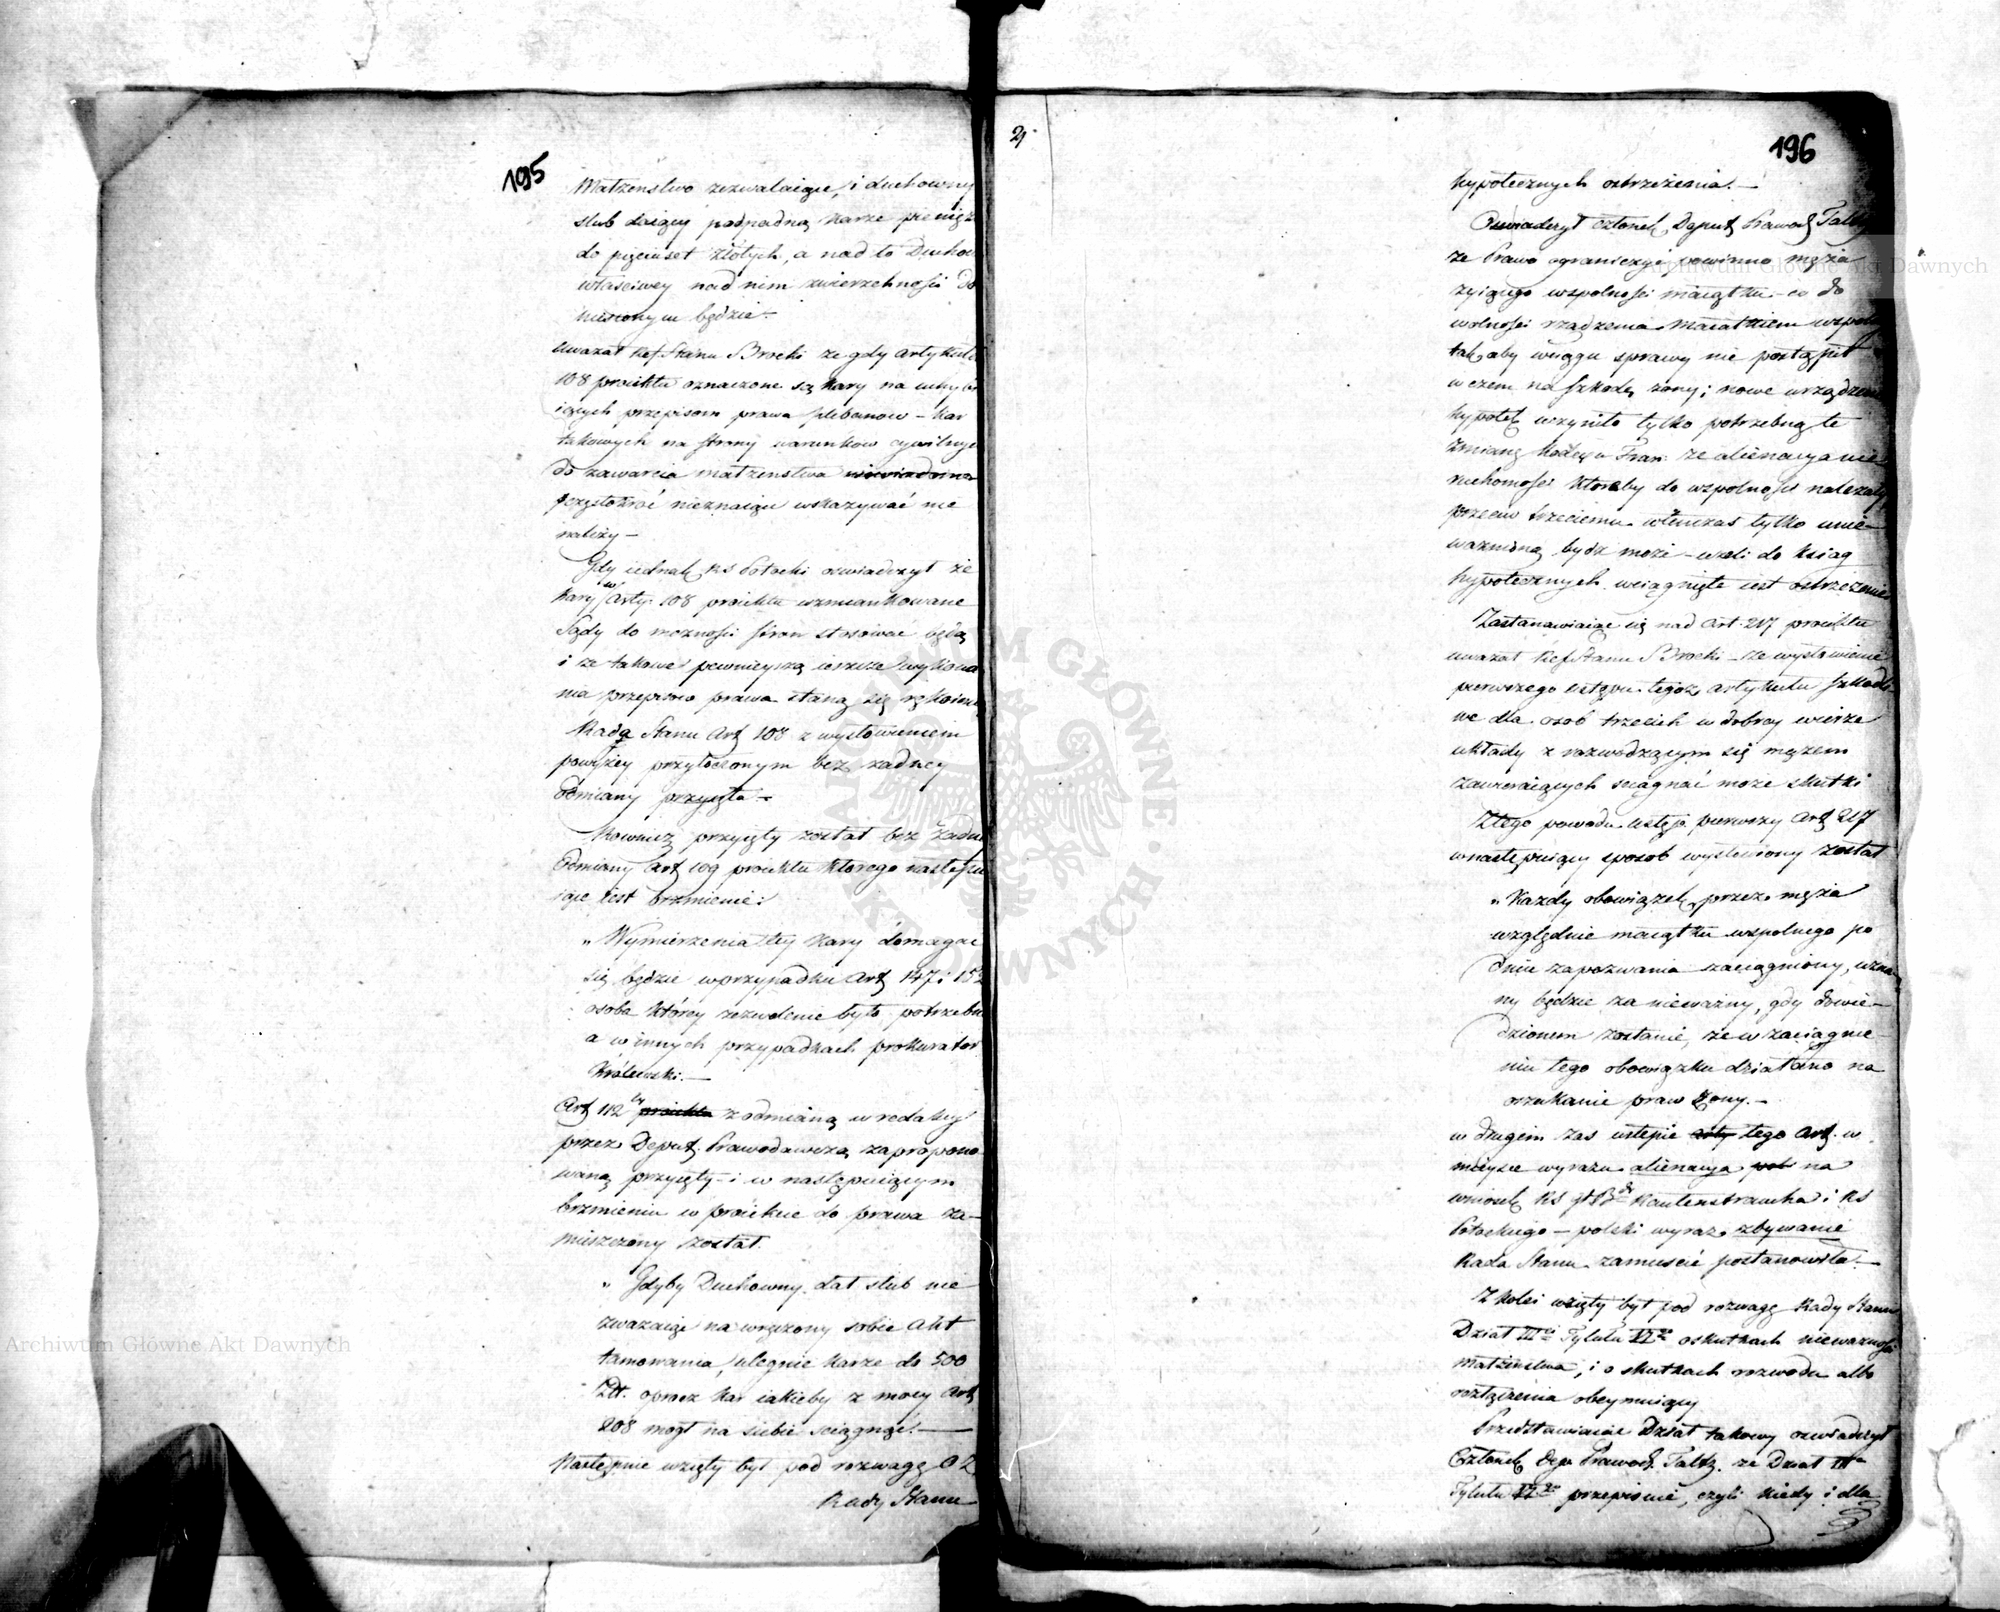 195
Małzenstwo zezwalaiące, i duchowny
slub daiący podpadną karze pienięż
do pięciuset złotych, a nad to Duchow
właściwey nad nim zwierzchności do
niesionym będzie.—
uwazał Ref. Stanu Brocki ze gdy artykułe
108 proiektu oznaczone są kary na uchybi
iących przepisom prawa plebanow — kar
takowych na strony warunkow cywilnych
do zawarcia małzenstwa
nieznaiące wskazywać nie
należy —
Gdy iednak KS Potocki oswiadczył że
kary w Arty. 108 proiektu wzmiankowane
Sądy do moznosci stron stosować będą
i ze takowe pewnieyszą ieszcze wykona
nia przepisow prawa staną się rękoimią
Rada Stanu Art 108 z wysłowieniem
powyżey przytoczonym bez zadney
odmiany przyięła —
Rownież przyięty został bez zadney
odmiany Art 109 proiektu ktorego następu
iące iest brzmienie:
„ Wymierzenia tey kary domagać
się będzie w przypadku Art 147 i 152
osoba którey zezwolenie było potrzebne
a w innych przypadkach prokurator
Królewski.—
Art 112 ty proiektu z odmianą w redakcyi
przez Deput. Prawodawczą zapropono
waną przyięty i w następuiącym
brzmieniu w proiekcie do prawa za-
mieszczony został.
„ Gdyby Duchowny dał slub nie
zwazaiąc na wręczony sobie Akt
tamowania, ulegnie karze do 500
Zł. oprocz kar iakieby z mocy Art
208 mogł na siebie sciągnąć.—
Następnie wzięty był pod rozwagę
Rady Stanu
196
hypotecznych ostrzeżenia.—
Oswiadczył członek Deput Prawod Faltz
ze Prawo ograniczyć powinno męża
zyiącego wspolności maiątku — co do
wolności rządzenia Maiątkiem wspoln
tak aby w ciągu sprawy nie postąpił
w czem na szkodę zony; nowe urządzenie
hypotek uczyniło tylko potrzebną te
zmianę Kodexu Fran: ze alienacya nie
ruchomości któreby do wspolności należały
przeciw trzeciemu wtenczas tylko unie-
ważnioną bydź może — ieżeli do ksiąg
hypotecznych wciągnięte iest ostrzeżenie
Zastanawiaiąc się nad Art. 217 proiektu
uwazał Ref. Stanu Brocki — ze wysłowienie
pierwszego ustępu tegoż artykułu szkodli-
we dla osob trzecich w dobrey wierze
układy z rozwodzącym się mężem
zawieraiących sciągnąć może skutki
Z tego powodu ustęp pierwszy Art 217
w następuiący sposob wysłowiony został
„ Kazdy obowiązek przez męża
względnie maiątku wspolnego po
dniu zapozwania zaciągniony, uzna-
ny będzie za nieważny, gdy dowie-
dzionem zostanie, że w zaciągnie-
niu tego obowiązku działano na
oszukanie praw Zony.—
w drugiem zas ustępie arty tego Art. w
mieysce wyrazu alienacya na
wniosek KS gł Br Rautenstraucha i KS
Potockiego — polski wyraz zbywanie
Rada Stanu zamieścić postanowiła.—
Z kolei wzięty był pod rozwagę Rady Stanu
Dział III ci Tytułu VI go o skutkach nieważności
małżeństwa, i o skutkach rozwodu albo
rozłączenia obeymuiący
Przedstawiaiąc Dział takowy oswiadczył
Członek Dep Prawod. Faltz. ze Dział
Tytułu VI go przepisuie, czyli kiedy i dla